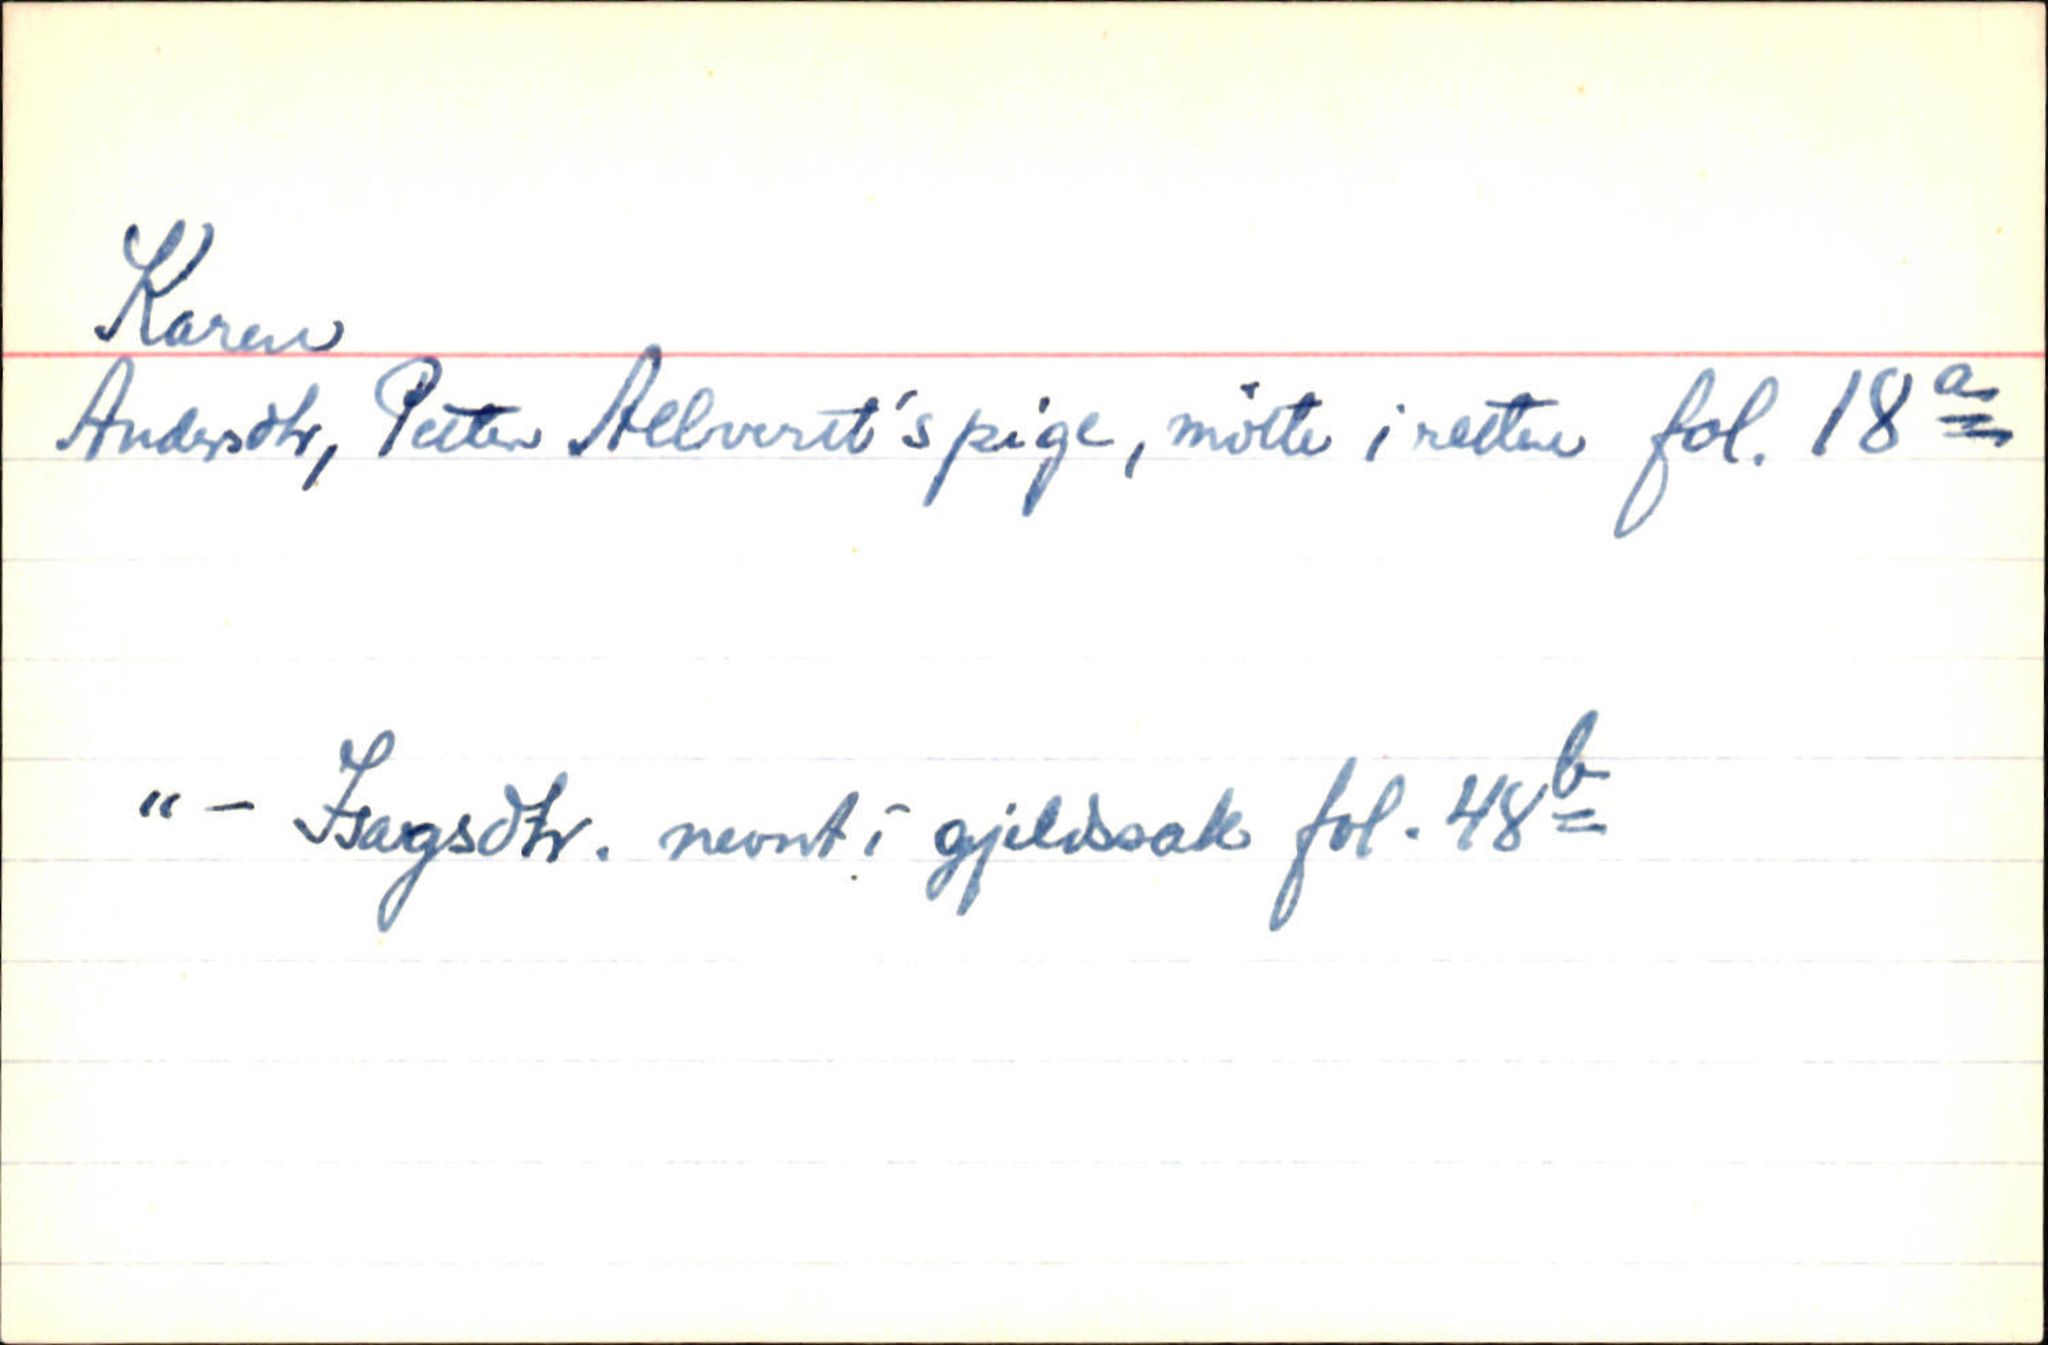 Karen
Andersdtr, Petter Allverst's pige, mötte i retten fol. 18 a
"- Isagsdtr. nevnt i gjeldssak fol. 48 b